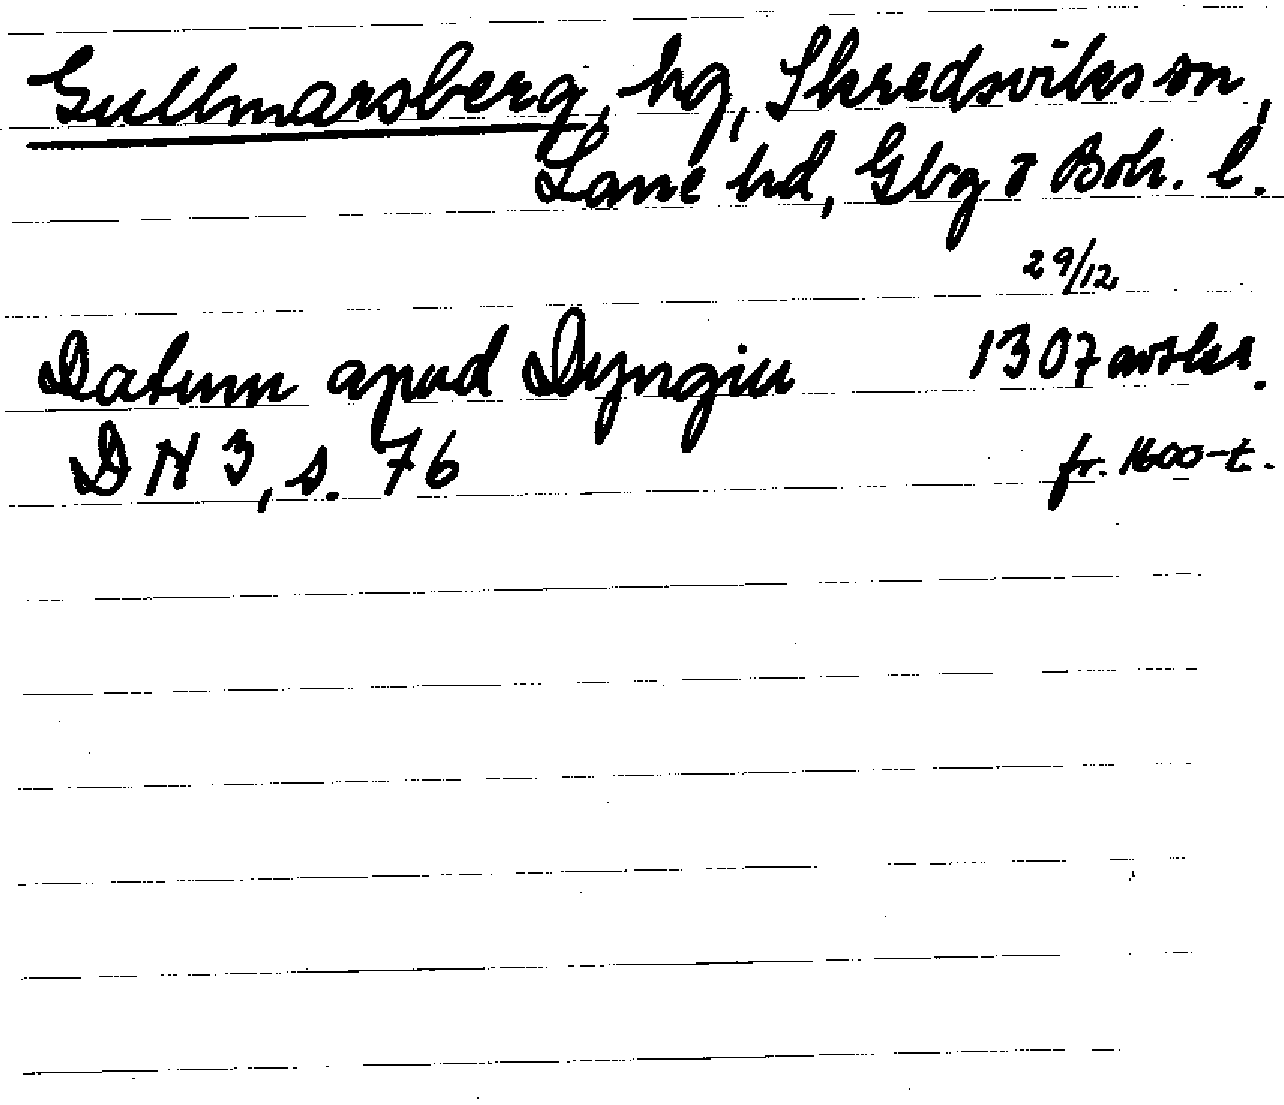 Gullmarsberg, hg, Skredsviks sn,
Lane hd, Gbg o Boh. l.
29/12
Datum apud Dyngiu 1307 avskr.
DN 3, s. 76 fr. 1600-t.